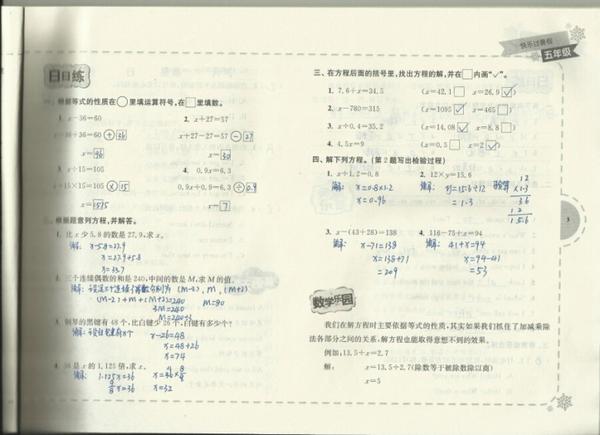 快乐过暑假
五年级
日日练
一、根据等式的性质在○里填运算符号,在□里填数。
1. x−36=60
x−36+36=60+36
x=96
2. x+27=57
x+27−27=57−27
x=30
3. x÷105=15
x=1575
4. 0.9x=6.3
0.9x÷0.9=6.3÷0.9
x=7
二、根据题意列方程,并解答。
1. 比x少5.8的数是27.9,求x。
解: x-5.8=27.9
x=27.9+5.8
x=33.7
2. 三个连续偶数的和是240,中间的数是M,求M的值。
(M-2)+M+(M+2)=240
M=80
3M=240
3. 钢琴的黑键有48个,比白键少26个,白键有多少个?
x-26=48
x=48+26
x=74
4. 36是x的1.125倍,求x。
解: 1.125x=36
x=32
三、在方程后面的括号里,找出方程的解,并在□内画“✓”。
1. 7.6+x=34.5 (x=42.1□ x=26.9☑)
2. x−780=315 (x=1095☑ x=465□)
3. x÷0.4=35.2 (x=14.08☑ x=8.8□)
4. 4.5x=9 (x=0.5□ x=2☑)
四、解下列方程。(第2题写出检验过程)
1. x÷1.2=0.8
解: x=0.8×1.2
x=0.96
2. 12×y=15.6
解: y=15.6÷12
=1.3
验算
12
×1.3
36
12
15.6
3. x−(43+28)=138
解: x-71=138
x=138+71
=209
4. 116−75+x=94
解: 41+x=94
x=94-41
=53
数学乐园
我们在解方程时主要依据等式的性质,其实如果我们抓住了加减乘除
法各部分之间的关系,解方程也能取得意想不到的效果。
例如,13.5÷x=2.7
解: x=13.5÷2.7(除数等于被除数除以商)
x=5
3